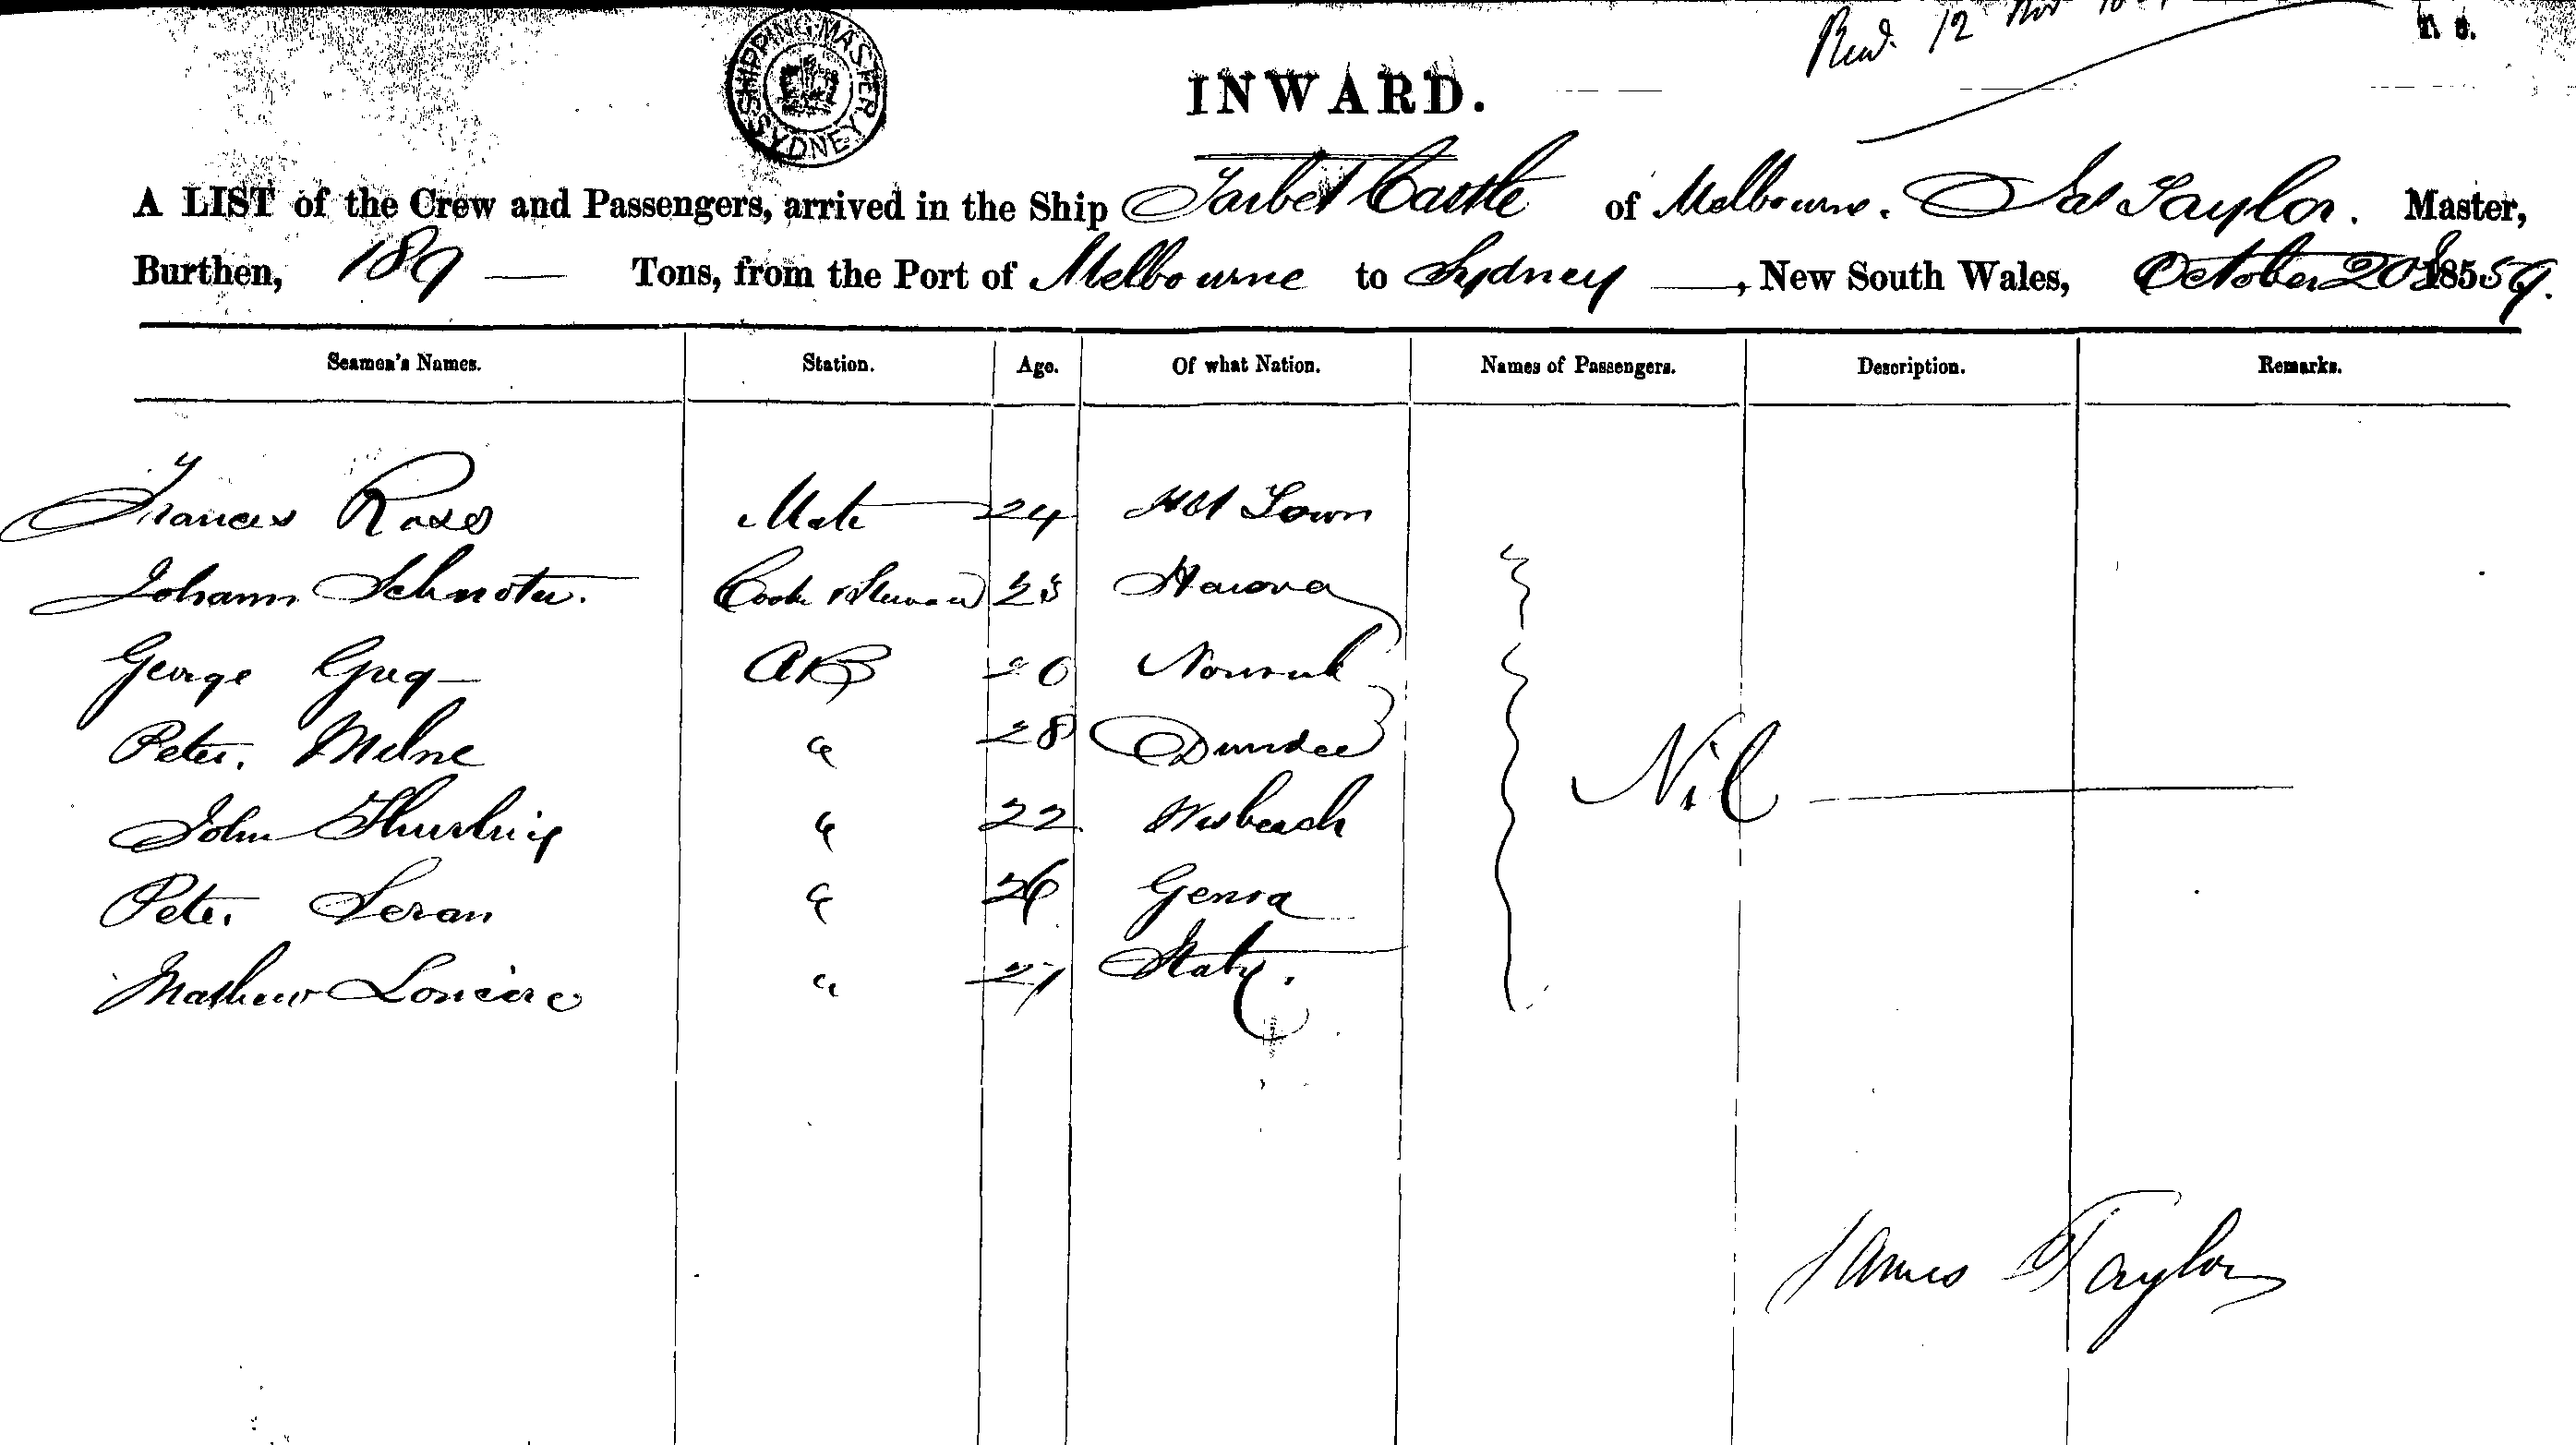 Recd. 12 Nov
SHIPPING MASTER SYDNEY
INWARD.
A LIST of the Crew and Passengers, arrived in the Ship Tarbet Castle of Melbourne. Jas Taylor. Master,
Burthen, 189 — Tons, from the Port of Melbourne to Sydney —, New South Wales, October 20th 18559.
Seamen's Names. Station. Age. Of what Nation. Names of Passengers. Description. Remarks.
Frances Ross Mate 24 Town
Johann Cook & Steward 23
George AB 20
Peter. Milne " 28 Dundee
John " 22 Wisbeach Nil
Peter. Seran " 26 Genoa
Mathew " 27 Italy.
James Taylor